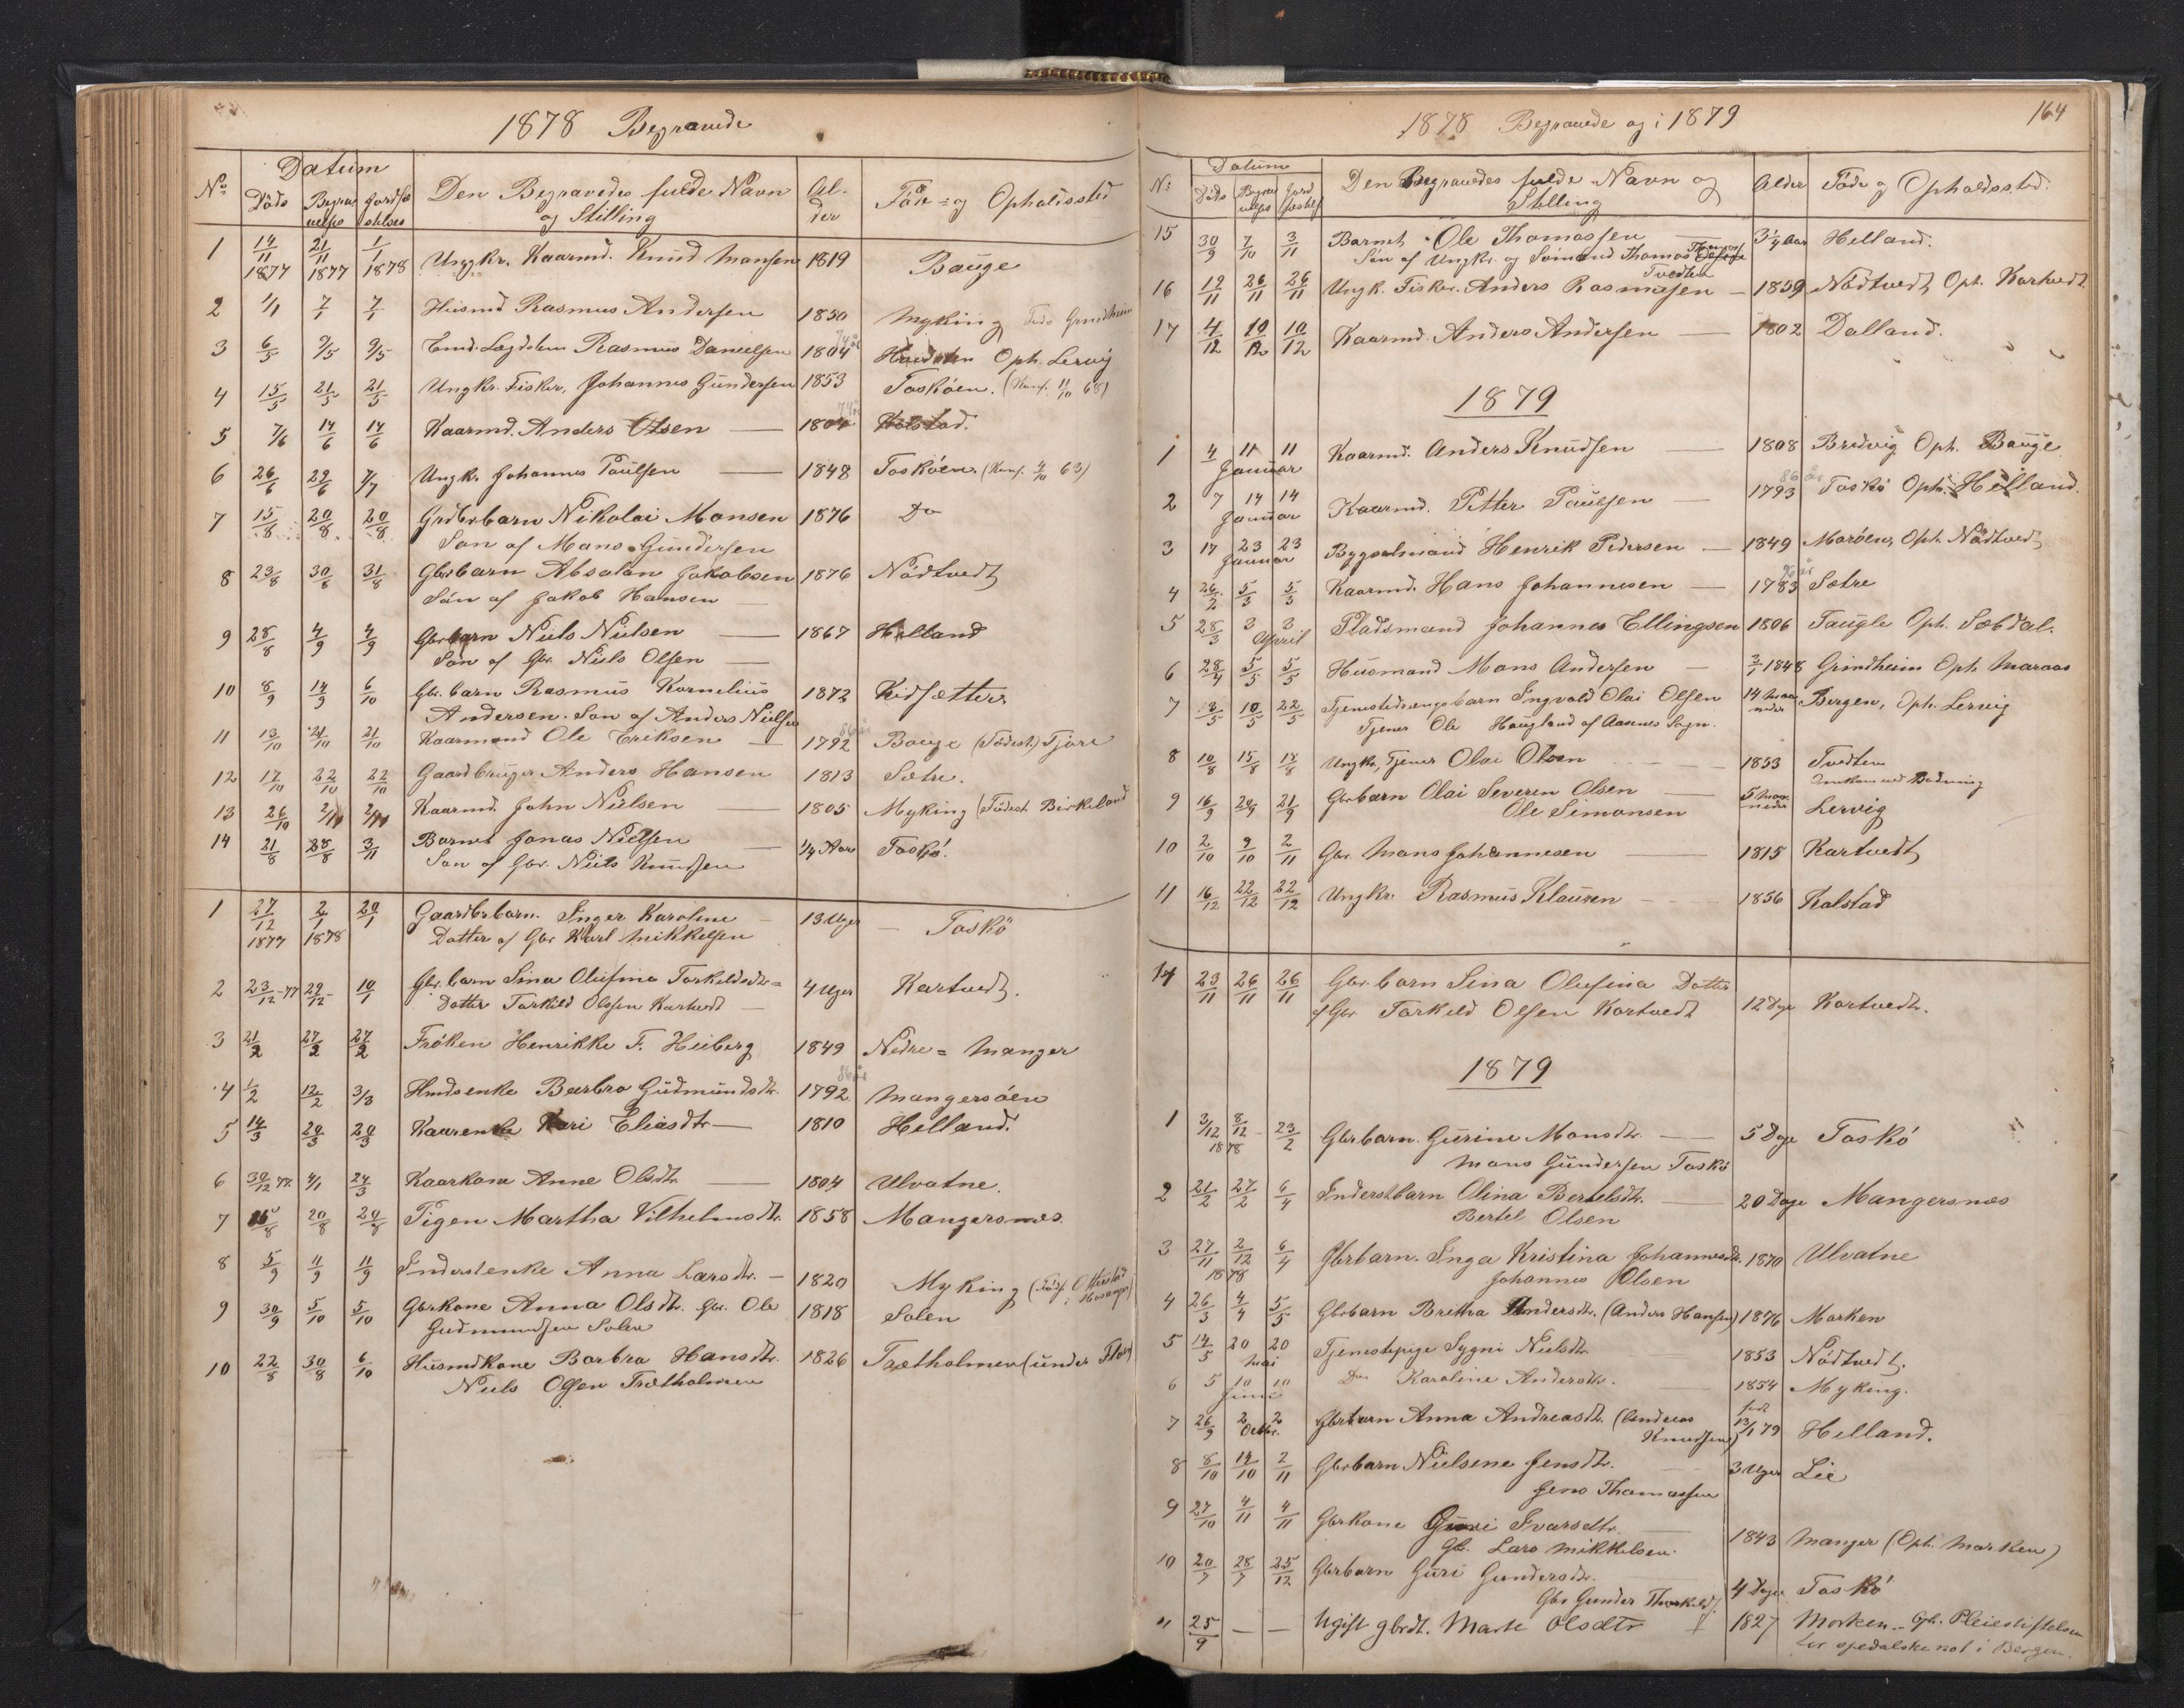 1878 Begravede
No Datum Den Begravedes fulde Navn og Stilling Alder Føde- og Opholdssted
Døds Begravelses Jordfæstelses
1 14/11 1877 21/11 1877 1/1 1878 Ungkr. Kaarmd. Knud Mansen 1819 Bauge
2 1/1 7/1 7/1 Huusmd Rasmus Andersen 1850 Myking Føds Grindheim
3 6/5 9/5 9/5 Rasmus Danielsen 1804 Oph. Lervig
4 15/5 21/5 21/5 Ungkr. Fisker, Johannes Gundersen 1853 Toskøen. (Konf. 11/10 68)
5 7/6 14/6 14/6 Kaarmd. Anders Olsen 1804 Kolstad.
6 26/6 29/6 7/7 Ungk. Johannes Paulsen 1848 Toskøen (Konf. 4/10 63)
7 15/8 20/8 20/8 Grdbrbarn Nikolai Monsen 1876 Do
Søn af Mans Gundersen
8 23/8 30/8 31/8 Gbrbarn Absalon Jakobsen 1876 Nødtvedt
Søn af Jakob Hansen
9 28/8 4/9 4/9 Gbrbarn Niels Nielsen 1867 Helland
Søn af Gbr. Niels Olsen
10 8/9 14/9 6/10 Gbr. barn Rasmus Kornelius 1872 Kidsætter
Andersen. Søn af Anders Nielsen
11 13/10 21/10 21/10 Kaarmand Ole Eriksen 86 år 1792 Bauge (Fødest.) Fjore
12 17/10 22/10 22/10 Gaardbruger Anders Hansen 1813 Sætre.
13 26/10 2/11 2/11 Kaarmd. John Nielsen 1805 Myking (Fødest Birkeland
14 21/8 28/8 3/11 Barnet Jonas Nielsen 1/4 Aar Toskø.
Søn af Gbr. Niels Knudsen
1 27/12 1877 2/1 1878 20/1 Gaardbrbarn. Inger Karoline 13 Uger Toskø
Datter af Gbr Karl Mikkelsen
2 23/12-77 29/12 10/1 Gbr. barn Sina Olufina Torkildsdtr 4 Uger Kartvedt.
Datter Torkild Olsen Kartvedt
3 21/2 27/2 27/2 Frøken Henrikke F. Heiberg 1849 Nedre = Manger
4 1/2 12/2 3/3 Hmdsenke Barbro Gudmundsdtr. 86 år 1792 Mangersøen
5 14/3 20/3 20/3 Kaarenke Kari Eliasdtr 1810 Helland.
6 30/12 77. 4/1 24/3 Kaarkone Anne Olsdtr 1804 Ulvatne.
7 16/8 20/8 20/8 Pigen Martha Vilhelmsdtr. 1858 Mangersnes.
8 5/9 11/9 11/9 Inderstenke Anna Larsdtr. 1820 Myking
9 30/9 5/10 5/10 Gbrkone Anna Olsdtr. Gbr. Ole 1818 Solen
Gudmundsen Solen
10 22/8 30/8 6/10 Husmdkone Barbra Hansdtr. 1826 Trætholmen (under Flore)
Niels Olsen Trætholmen
1878 Begravede og i 1879 164
No Datum Den Begravedes fulde Navn og Stilling Alder Føde og Opholdssted.
Døds Begravelses Jordfæstelses
15 30/9 7/10 3/11 Barnet Ole Thomassen 3 1/4 Aar Helland.
Søn af Ungkr. og Sømand Thomas
Tvedten
16 19/11 26/11 26/11 Ungk. Fisker. Anders Rasmusen 1859 Nødtvedt Oph. Kartvedt
17 4/12 10/12 10/12 Kaarmd. Anders Andersen 1802 Dalland.
1879
1 4 11 11 Januar Kaarmd. Anders Knudsen 1808 Bredvig Oph. Bauge.
2 7 14 14 Januar Kaarmd. Petter Paulsen 86 år 1793 Toskø Oph. Helland.
3 17 23 23 Januar Bygselmand Henrik Pedersen 1849 Marøen, Oph. Nødtvedt
4 26/2 5/3 5/3 Kaarmd. Hans Johannesen 1783 Sætre
5 28/3 3 3 April Pladsmand Johannes Ellingsen 1806 Taugle Oph. Sæbdal.
6 28/4 5/5 5/5 Husmand Mons Andersen 1848 Grindheim Oph. Maraas
7 3/5 10/5 22/5 Tjenestedrengsbarn Ingvald Olai Olsen 14 maaneder Bergen, Oph. Lervig
Tjener Ole Haugland af Aasnes Sogn.
8 10/8 15/8 17/8 Ungkr, Tjener Olai Olsen 1853 Tvedten
Omkom ved Badning
9 16/9 20/9 21/9 Gbrbarn Olai Severin Olsen 5 maaneder Lervig
Ole Simonsen
10 2/10 9/10 2/11 Gbr. Mons Johannesen 1815 Kartvedt
11 16/12 22/12 22/12 Ungkr. Rasmus Klausen 1856 Kalstad
14 23/11 26/11 26/11 Gbr. barn Sina Olufina Datter 12 Dage Kartvedt.
af Gbr Torkild Olsen Kartvedt
1879
1 3/12 8/12 1878 23/2 Gbrbarn. Gurine Monsdtr. 5 Dage Toskø
Mons Gundersen Toskø
2 21/2 27/2 6/4 Inderstbarn Olina Bertelsdtr. 20 Dage Mangersnæs
Bertel Olsen
3 27/11 2/12 1878 6/4 Gbrbarn. Inga Kristina Johannesdtr. 1870 Ulvatne
Johannes Olsen
4 26/3 4/4 5/5 Gbrbarn Bretha Andersdtr. (Anders Hansen) 1876 Marken
5 14/5 20 20 Mai Tjenestepige Sygni Nielsdtr. 1853 Nødtvedt.
6 5 10 10 Juni Do Karoline Andersdtr. 1854 Myking.
7 26/9 2 2 Octbr. Gbrbarn Anna Andreasdtr. (Andreas Knudsen) født 13/1 79 Helland.
8 8/10 14/10 2/11 Gbrbarn Nielsine Jensdtr. 3 Uger Lie
Jens Thomassen
9 27/10 4/11 4/11 Gbrkone Guri Ivarsdtr. 1843 Manger (Oph. Marken)
Gb. Lars Mikkelsen.
10 20/7 28/7 25/12 Gbrbarn Guri Gundersdtr. 4 Dage Toskø
Gbr Gunder Thorkilds.
" 25/9 — — Ugift gbrdt. Marte Olsdtr 1827 Morken. Oph. Pleiestiftelsen
for spedalske no 1 i Bergen.